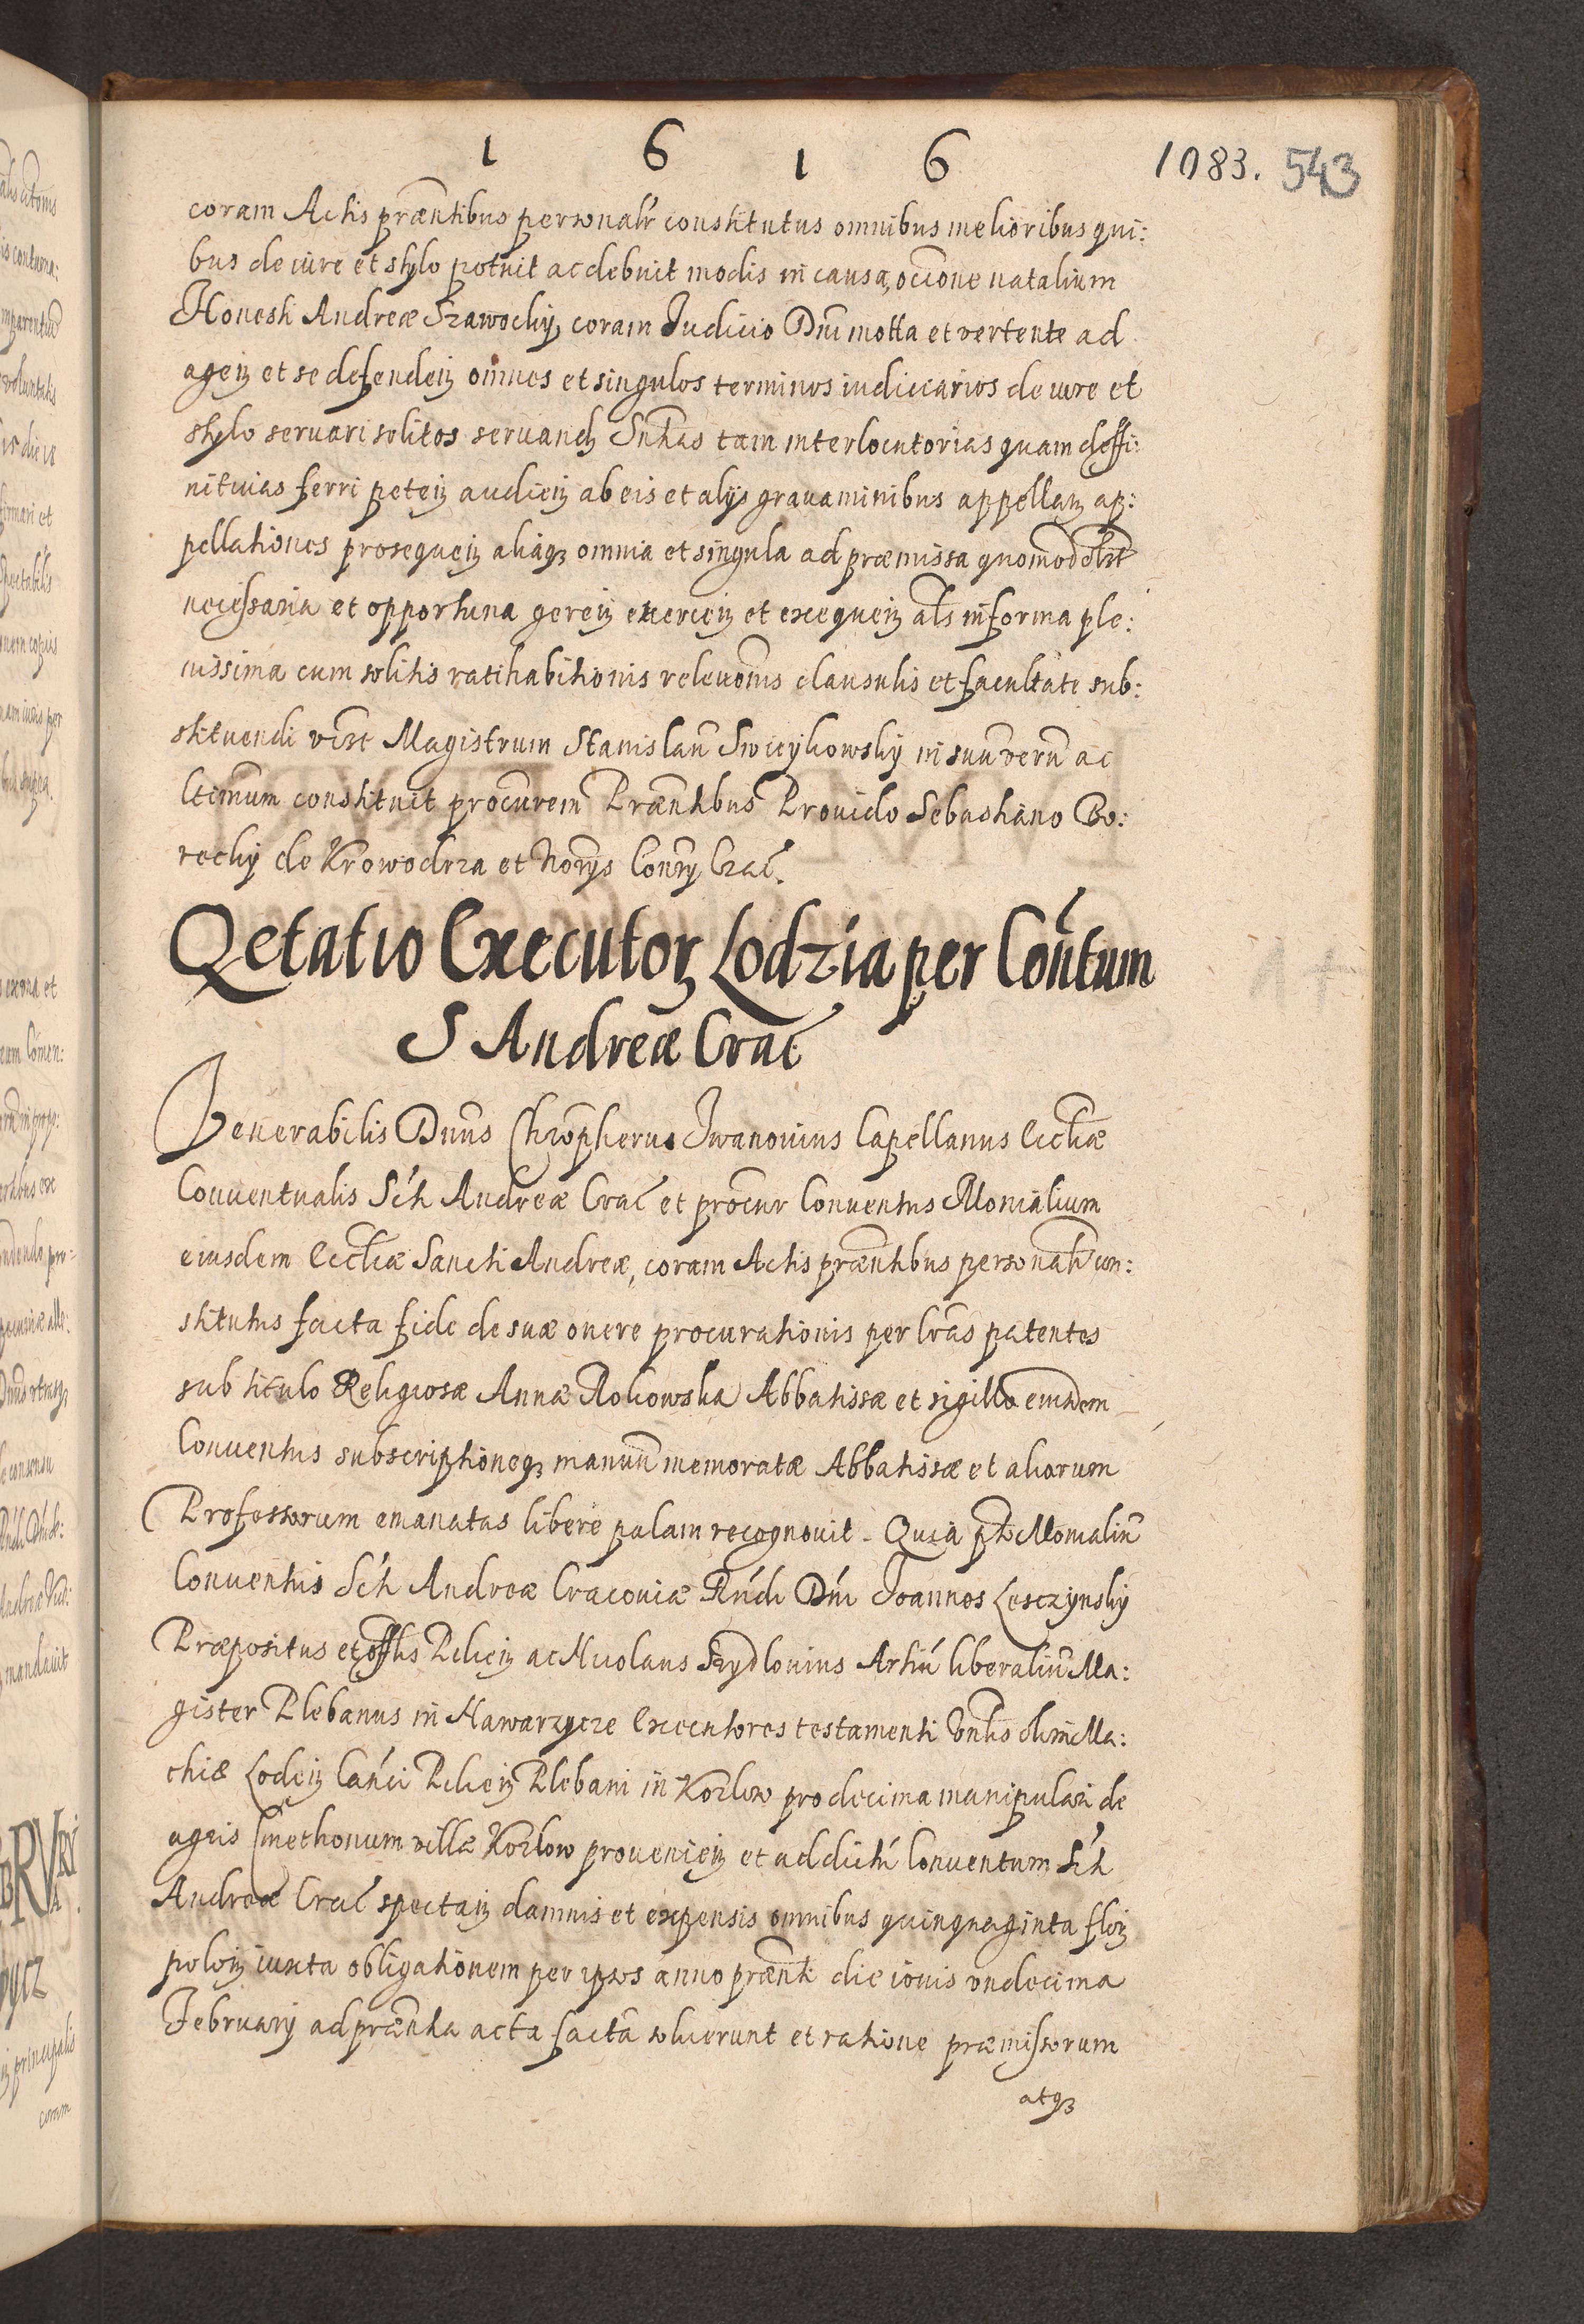 1 6 1 6
1083. 543
coram Actis præntibus personalr constitutus omnibus melioribus qui:
bus de iure et stylo potuit ac debuit modis in causa, occione natalium
Honesti Andreæ Szawockÿ, coram Judicio Dni motta et vertente ad
agenꝫ et se defendenꝫ omnes et singulos terminos iudiciarios de iure et
stylo servari solitos servandꝫ Sntias tam interlocutorias quam deffi:
nitiuas ferri petenꝫ audienꝫ ab eis et alÿs grauaminibus appellanꝫ ap:
pellationes prosequenꝫ aliaqꝫ omnia et singula ad præmissa quomodolbt
necessaria et opportuna gerenꝫ exercenꝫ et exequenꝫ als in forma ple:
nissima cum solitis ratihabitionis releuonis clausulis et facultate sub:
stituendi Magistrum Stanislau Swieykowskÿ in suu veru ac
ltimum constituit procurem Præntibus Prouido Sebastiano Bo:
reckÿ de Krowodrza et Norÿs Conrÿ Crac.
Qetatio Executorꝫ Lodzia per Contum
S Andreæ Crac
Venerabilis Dnus Chrophorus Iwanouius Capellanus Eccliæ
Conuentualis Scti Andreæ Crac et procur Conuentus Monialium
eiusdem Eccliæ Sancti Andreæ, coram Actis præntibus personalr con:
stitutus facta fide de suæ onere procurationis per lras patentes
sub titulo Religiosæ Annæ Rokowska Abbatissæ et sigillo eiusdem
Conuentus subscriptioneqꝫ manuu memoratæ Abbatissæ et aliorum
Professorum emanatas libere palam recognouit. Quia Monialiu
Conuentus Scti Andreæ Cracouiæ Rndi Dni Joannes Lesczynskÿ
Præpositus et offlis Pilicinꝫ ac Nicolaus Szydlouius Artiu liberaliu Ma:
gister Plebanus in Nawarzycze Executores testamenti Vnlis olim Ma:
thiæ Lodcinꝫ Canci Pilicinꝫ Plebani in Kozlow pro decima manipulari de
agris Cmethonum villæ Kozlow prouenienꝫ et ad dictu Conuentum Scti
Andreæ Crac spectanꝫ damnis et expensis omnibus quinquaginta florꝫ
polonꝫ iuxta obligationem per ipsos anno prænti die iouis vndecima
Februarÿ ad prænta acta facta soluerunt et ratione præmissorum
atqꝫ